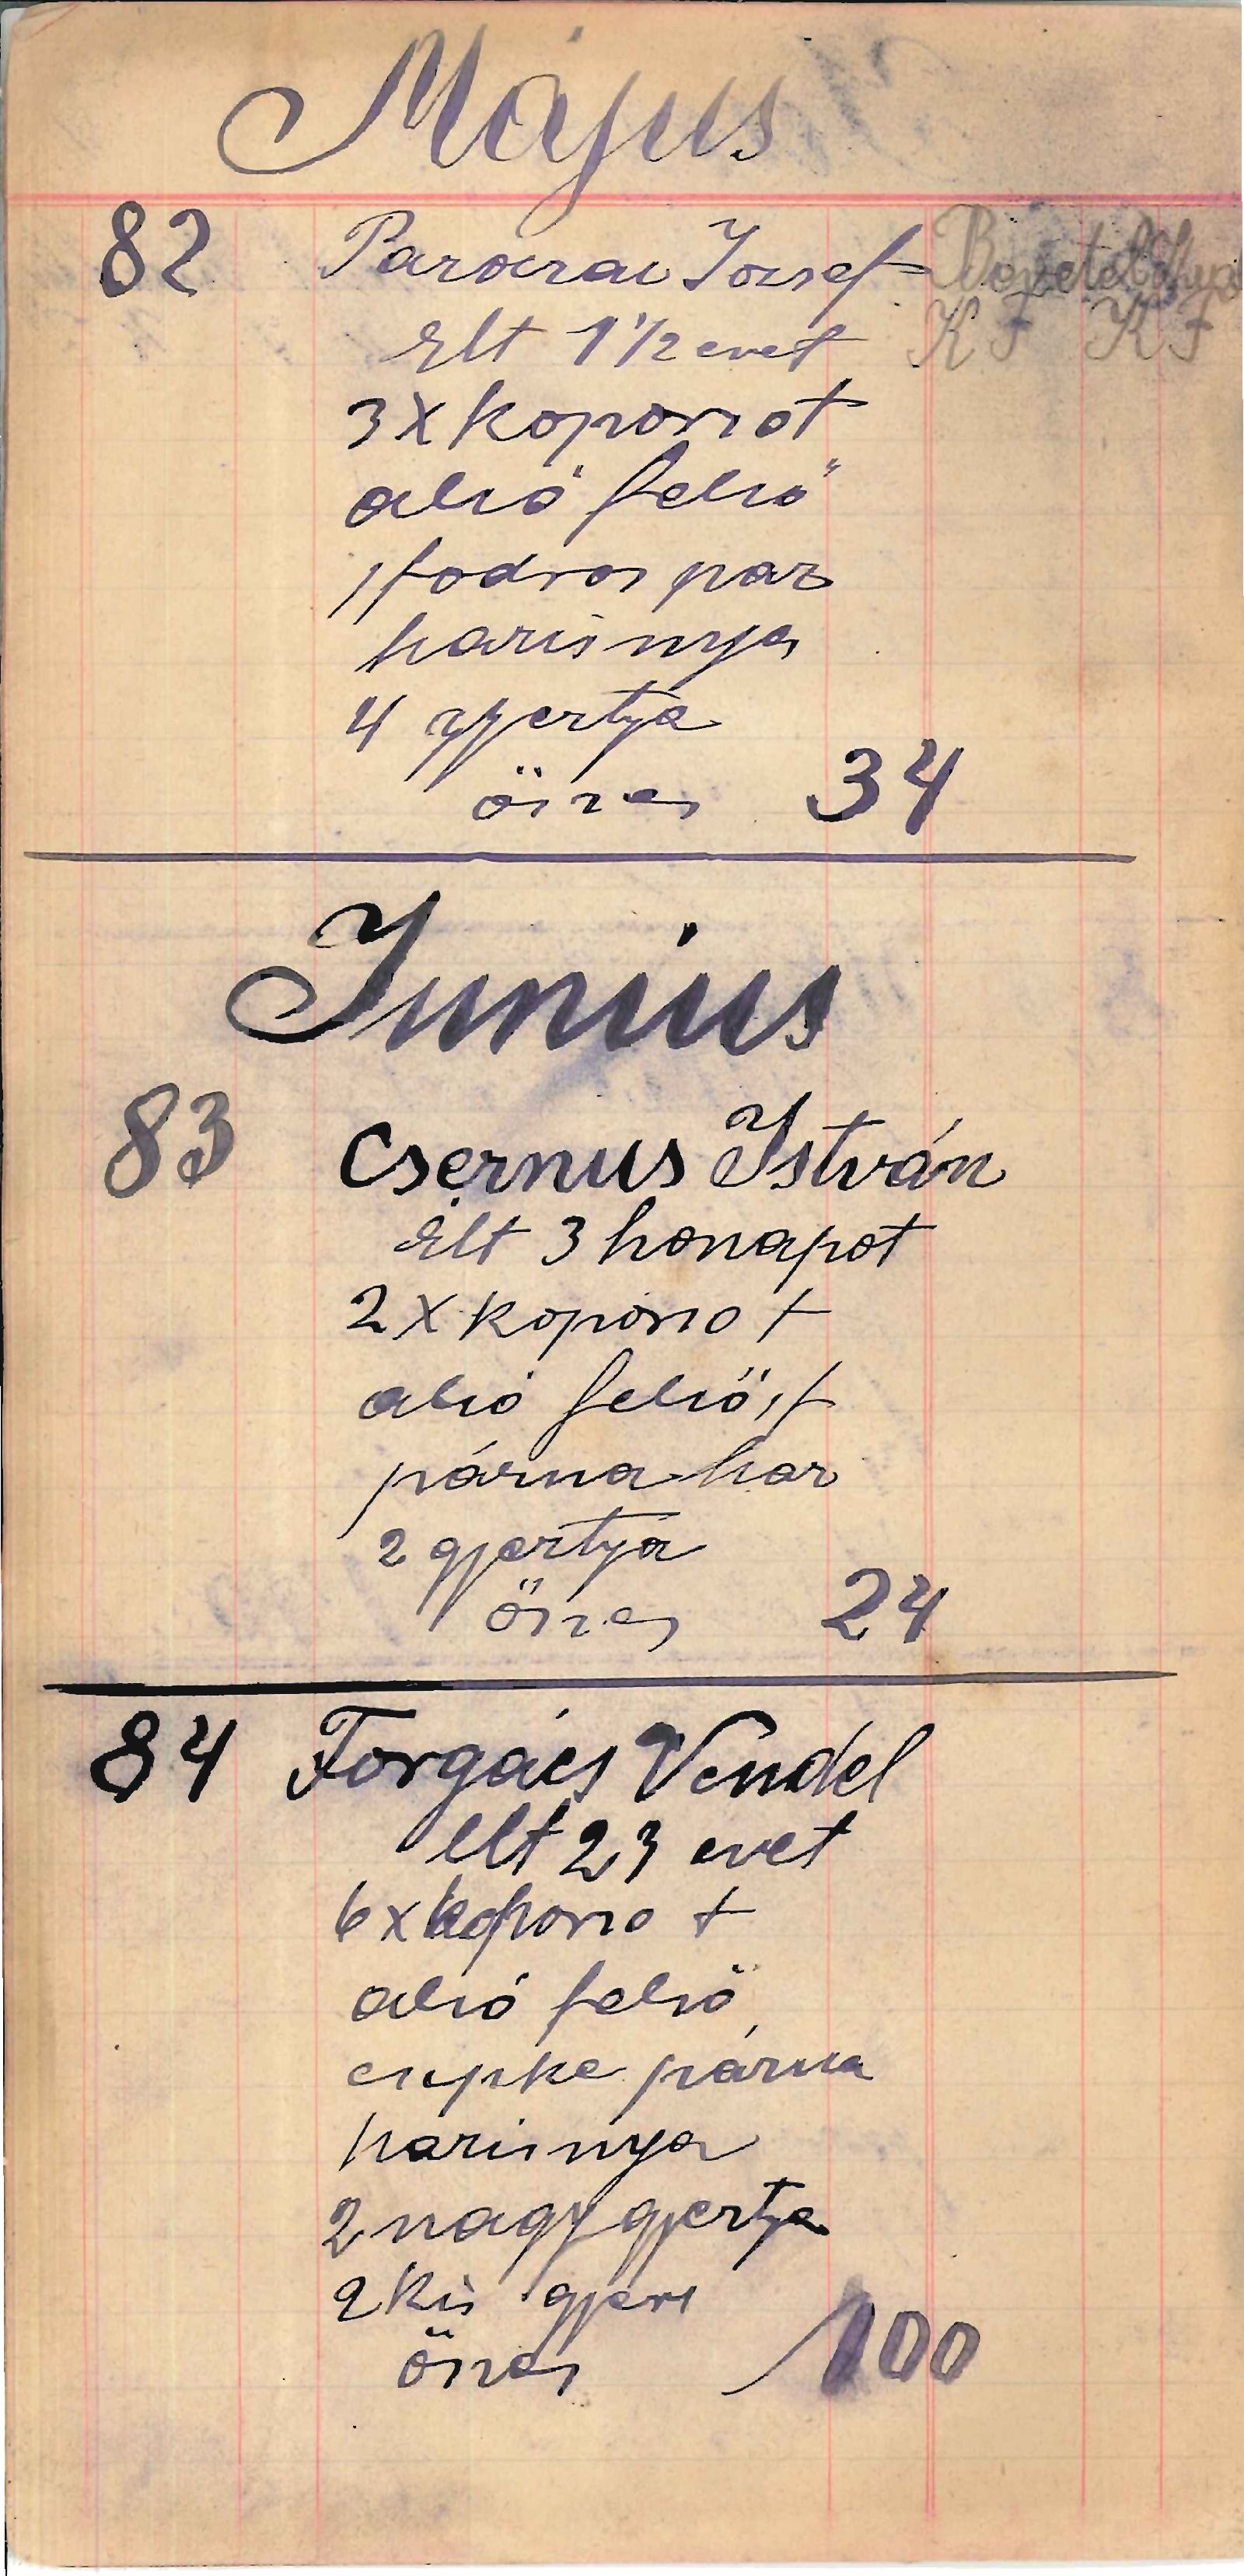 Május
82 Parocrai József
élt 1 1/2 evet
K F K F
3 X koporsot
alsó felső
1 fodros par
harisnya
4 gyertya
össes 34
Junius
83 Csernus István
élt 3 honapot
2 X koporso t
alsó felső 1 f
párna har
2 gyertya
össes 24
84 Forgács Vendel
élt 23 evet
6 x koporso t
alsó felső
csipke párna
harisnya
2 nagy gyertya
2 kis gyert
össes 100